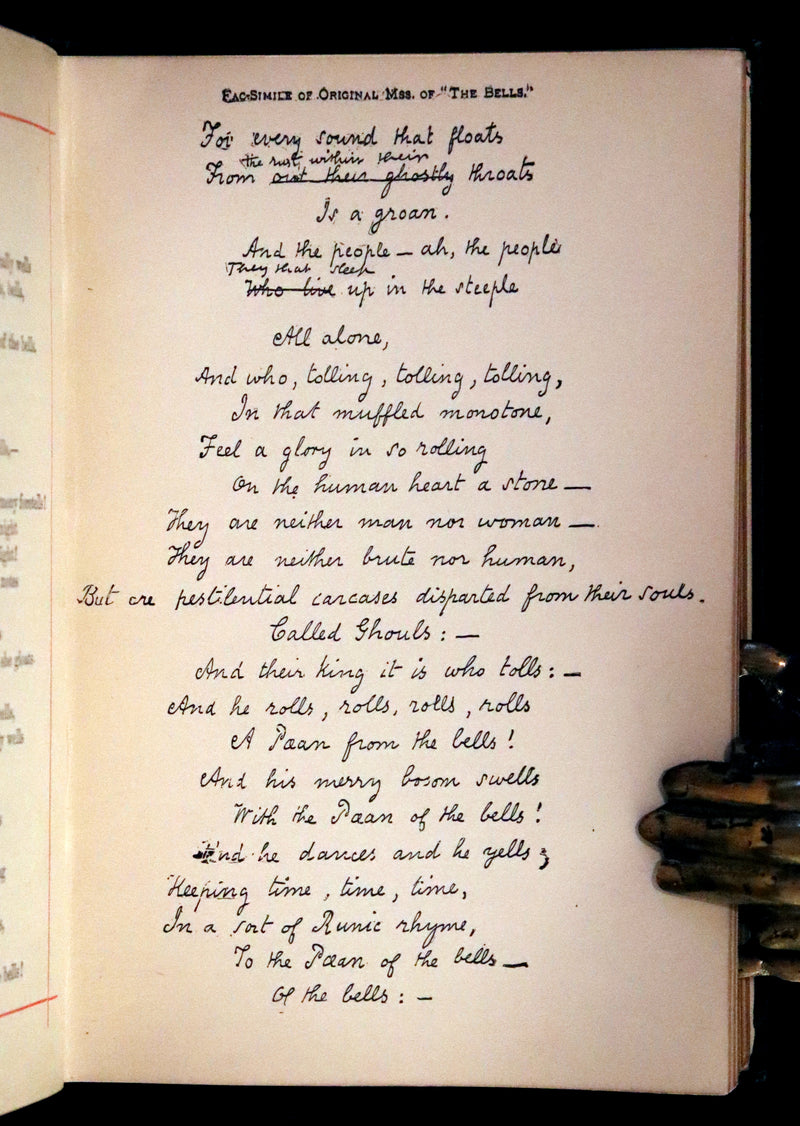 FAC-SIMILE OF ORIGINAL MSS. OF "THE BELLS."
For every sound that floats
the rust within their
From out their ghostly throats
Is a groan.
And the people — ah, the people
They that sleep
Who live up in the steeple
All alone,
And who, tolling, tolling, tolling,
In that muffled monotone,
Feel a glory in so rolling
On the human heart a stone —
They are neither man nor woman —
They are neither brute nor human,
But are pestilential carcases disparted from their souls.
Called Ghouls: —
And their king it is who tolls: —
And he rolls, rolls, rolls, rolls
A Pæan from the bells!
And his merry bosom swells
With the Pæan of the bells!
And he dances and he yells;
Keeping time, time, time,
In a sort of Runic rhyme,
To the Pæan of the bells —
Of the bells: —
wells
bells,
of the bells.
foretells!
night
light!
notes
she gloats
bells,
wells
bells!